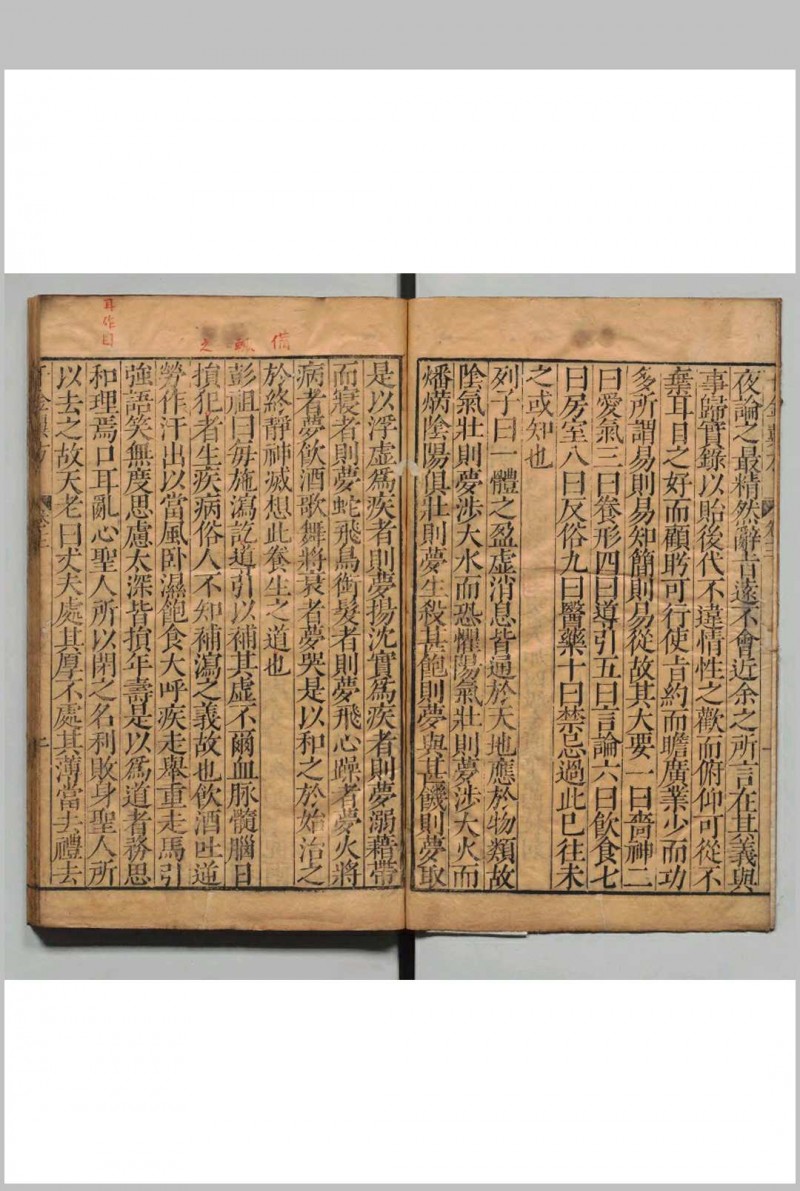 夜論之最精然辭旨遠不會近余之所言在其義與
事歸實錄以貽後代不違情性之歡而俯仰可從不
棄耳目之好而顧眄可行使旨約而贍廣業少而功
多所謂易則易知簡則易從故其大要一曰嗇神二
曰愛氣三曰養形四曰導引五曰言論六曰飲食七
曰房室八曰反俗九曰醫藥十曰禁忌過此已往未
之或知也
列子曰一體之盈虛消息皆通於天地應於物類故
陰氣壯則夢涉大水而恐懼陽氣壯則夢涉大火而
燔焫陰陽俱壯則夢生殺甚飽則夢與甚饑則夢取
是以浮虛爲疾者則夢揚沈實爲疾者則夢溺藉帶
而寢者則夢蛇飛鳥銜髮者則夢飛心躁者夢火將
病者夢飲酒歌舞將衰者夢哭是以和之於始治之
於終靜神滅想此養生之道也
彭祖曰每施瀉訖導引以補其虛不爾血脉髓腦日
損犯者生疾病俗人不知補瀉之義故也飲酒吐逆
勞作汗出以當風卧濕飽食大呼疾走舉重走馬引
強語笑無度思慮太深皆損年壽是以爲道者務思
和理焉口耳亂心聖人所以閉之名利敗身聖人所
以去之故天老曰丈夫處其厚不處其薄當去禮去
耳作目